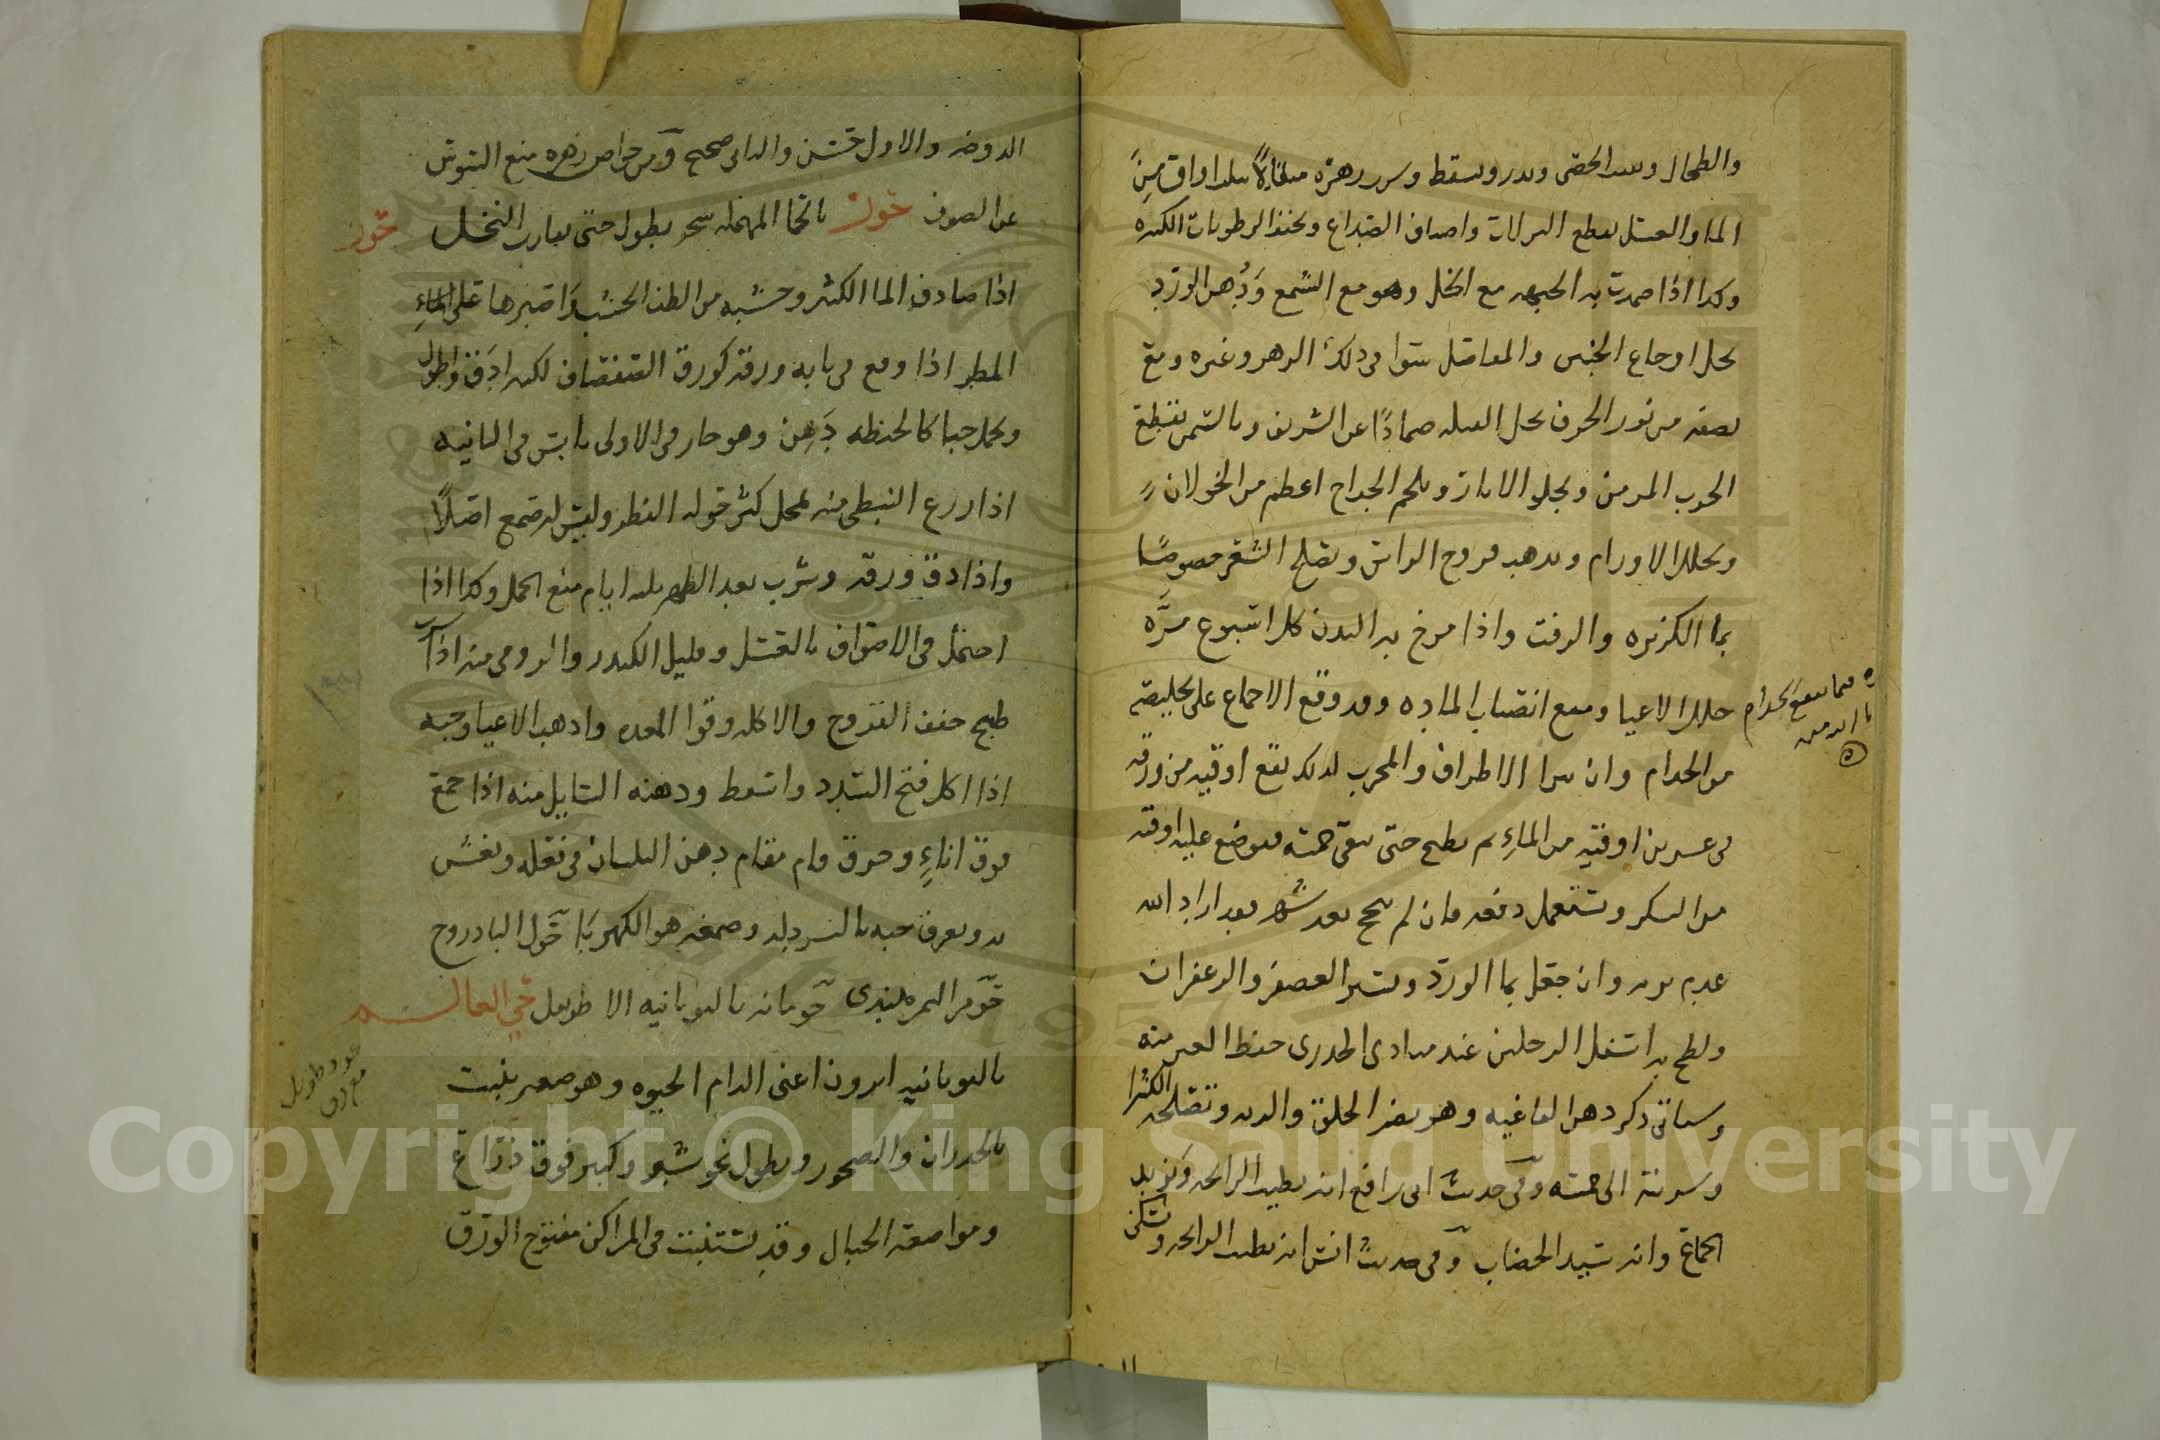 والطحال وىفتت الحصى وىدر وىسقط وىىزر زهره مثقالا ىثلاث اواق من
الما والعسل ىقطع النزلات واصناف الصداع وىجفف الرطوبات الكثيره
وكدا اذا ضمدت به الجبهه مع الخل وهو مع الشمع ودهن الورد
ىحل اوجاع الجنبين والمفاصل سوا فى ذلك الزهر وغيره ومع
نصفه من نور الحرف ىحل القيله ضمادا عن الشريف وبالسمن ىقطع
الجرب المزمن وىجلو الاثار وىلحم الجراح اعظم من الخولان
وىحلل الاورام وىدهب قروح الراس وىصلح الشعر خصوصا
بما الكزبره والزفت واذا مرخ به البدن كل اسبوع مره
حلل الاعيا ومنع انصباب الماده وقد وقع الاجماع على تخليصه
من الجدام وان ىىر الاطراف والمجرب لذلك نقع اوقيه من ورقه
فى عشرين اوقيه من الماء ثم ىطبخ حتى ىبقى خمسه فىوضع عليه اوقيه
من السكر وىستعمل دفعه فان لم ىنجح بعد شهر فقد اراد الله
عدم برىه وان جعل بما الورد وىسير العصفر والزعفران
ولطخ به اسفل الرجلين عند مبادى الجدرى حفظ العين منه
وسياتى ذكر دهن الفاغيه وهو ىضر الحلق والرىه وىصلحه الكثيرا
وشربته الى خمسه وفى حديث ابى رافع انه ىطيب الرائحه وىزيد
الجماع وانه سيد الخضاب وفى حديث انس انه ىطيب الرائحه وىسكن
الدوخه والاول حسن والثانى صحيح ومن خواص زهره منع السوس
عن الصوف حور بالحا المهمله شجر ىطول حتى ىقارب النخل
حور
اذا صادف الما الكثير وخشبه من الطف الخشب واصبرها على الماء
المطر اذا وقع فى بابه ورقه كورق الصفصاف لكنه ادق واطول
وىحمل حبا كالحنطه دهن وهو حار فى الاولى يابس فى الثانيه
اذا زرع النبطى منه بمحل كثر حوله الفطر وليس له صمغ اصلا
واذا دق ورقه وشرب بعد الطهر ثلاثه ايام منع الحمل وكذا اذا
احتمل فى الاصواف بالعسل وقليل الكندر والرومى منه اذا
طبخ جفف القروح والاكله وقوا المعده واذهب الاعيا وحبه
اذا اكل فتح السدد واسقط ودهنه السايل منه اذا جمع
فوق اناء وحرق قام مقام دهن البلسان فى فعله وىغش
به وىعرف حبه بالنردبله وصمغه هو الكهربا حول البادروج
حومر التمر هندى حومانه باليونانيه الاطريفل حى العالم
باليونانيه ابرون اعنى الدام الحيوه وهو صغير ىنبت
بالجدران والصخور وىطول نحو شبر وكبير فوق ذراع
ومواضعه الجبال وقد ىستنبت فى المراكن مفتوح الورق
Copyright © King Saud University
1957